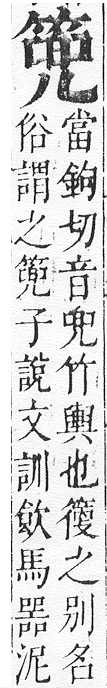 篼
當鉤切音兜竹輿也箯之別名
俗謂之篼子說文訓飮馬器泥